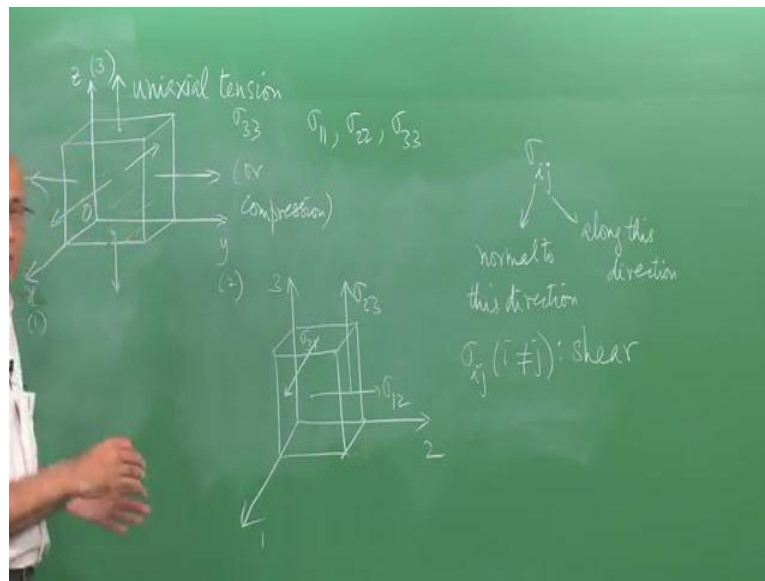 z (3)
uniaxial tension
σ33 σ11, σ22, σ33
(or
compression)
0
y
(2)
x
(1)
σij
normal to
this direction
along this
direction
σij (i ≠ j): shear
3
σ23
σ12
2
1